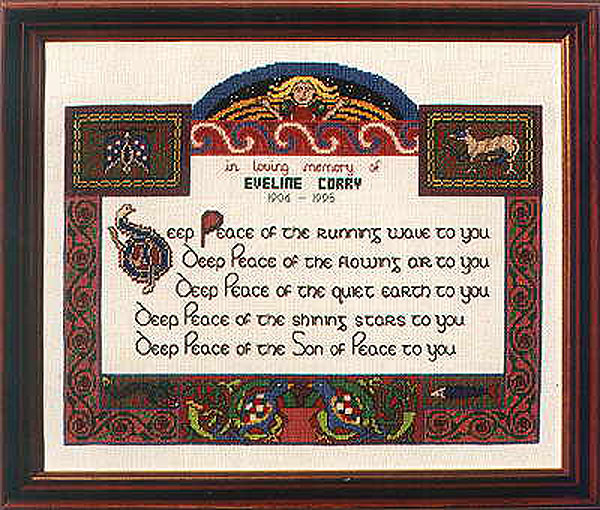 in loving memory of
EVELINE CORRY
1906 – 1995
Deep Peace of the running wave to you
Deep Peace of the flowing air to you
Deep Peace of the quiet earth to you
Deep Peace of the shining stars to you
Deep Peace of the Son of Peace to you